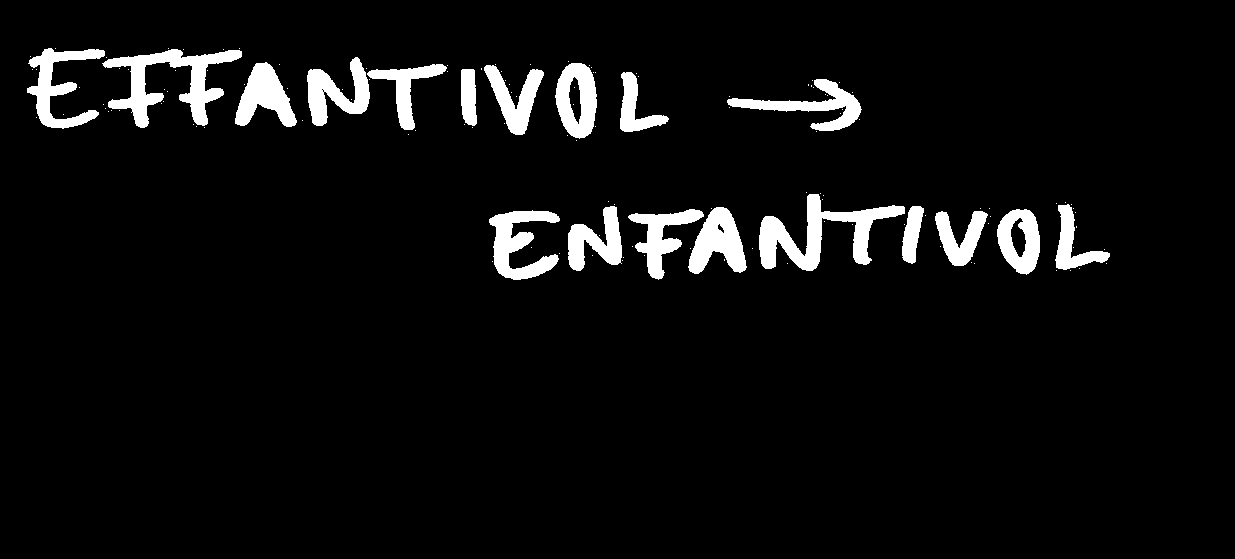 EFFANTIVOL →
ENFANTIVOL